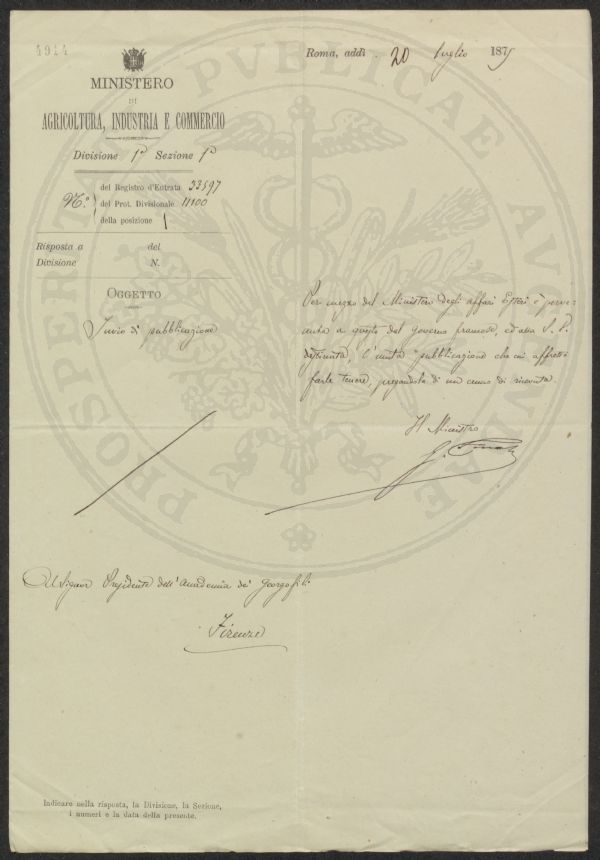 4944
Roma, addì 20 luglio 1875
MINISTERO
DI
AGRICOLTURA, INDUSTRIA E COMMERCIO
Divisione 1ª Sezione 1ª
N.° del Registro d'Entrata 23597
del Prot. Divisionale 11100
della posizione 1
Risposta a del
Divisione N.
OGGETTO
Invio di pubblicazione
Per mezzo del Ministero degli affari Esteri è perve-
nuta a questo dal governo francese, ed alla S. V.
destinata, l'unita pubblicazione che mi affretto
farle tenere, pregandola di un cenno di ricevuta.
Il Ministro
G. Finali
Al Signor Presidente dell'Accademia de' Georgofili
Firenze
Indicare nella risposta, la Divisione, la Sezione,
i numeri e la data della presente.
PROSPERITATI PVBLICAE AVGENDAE